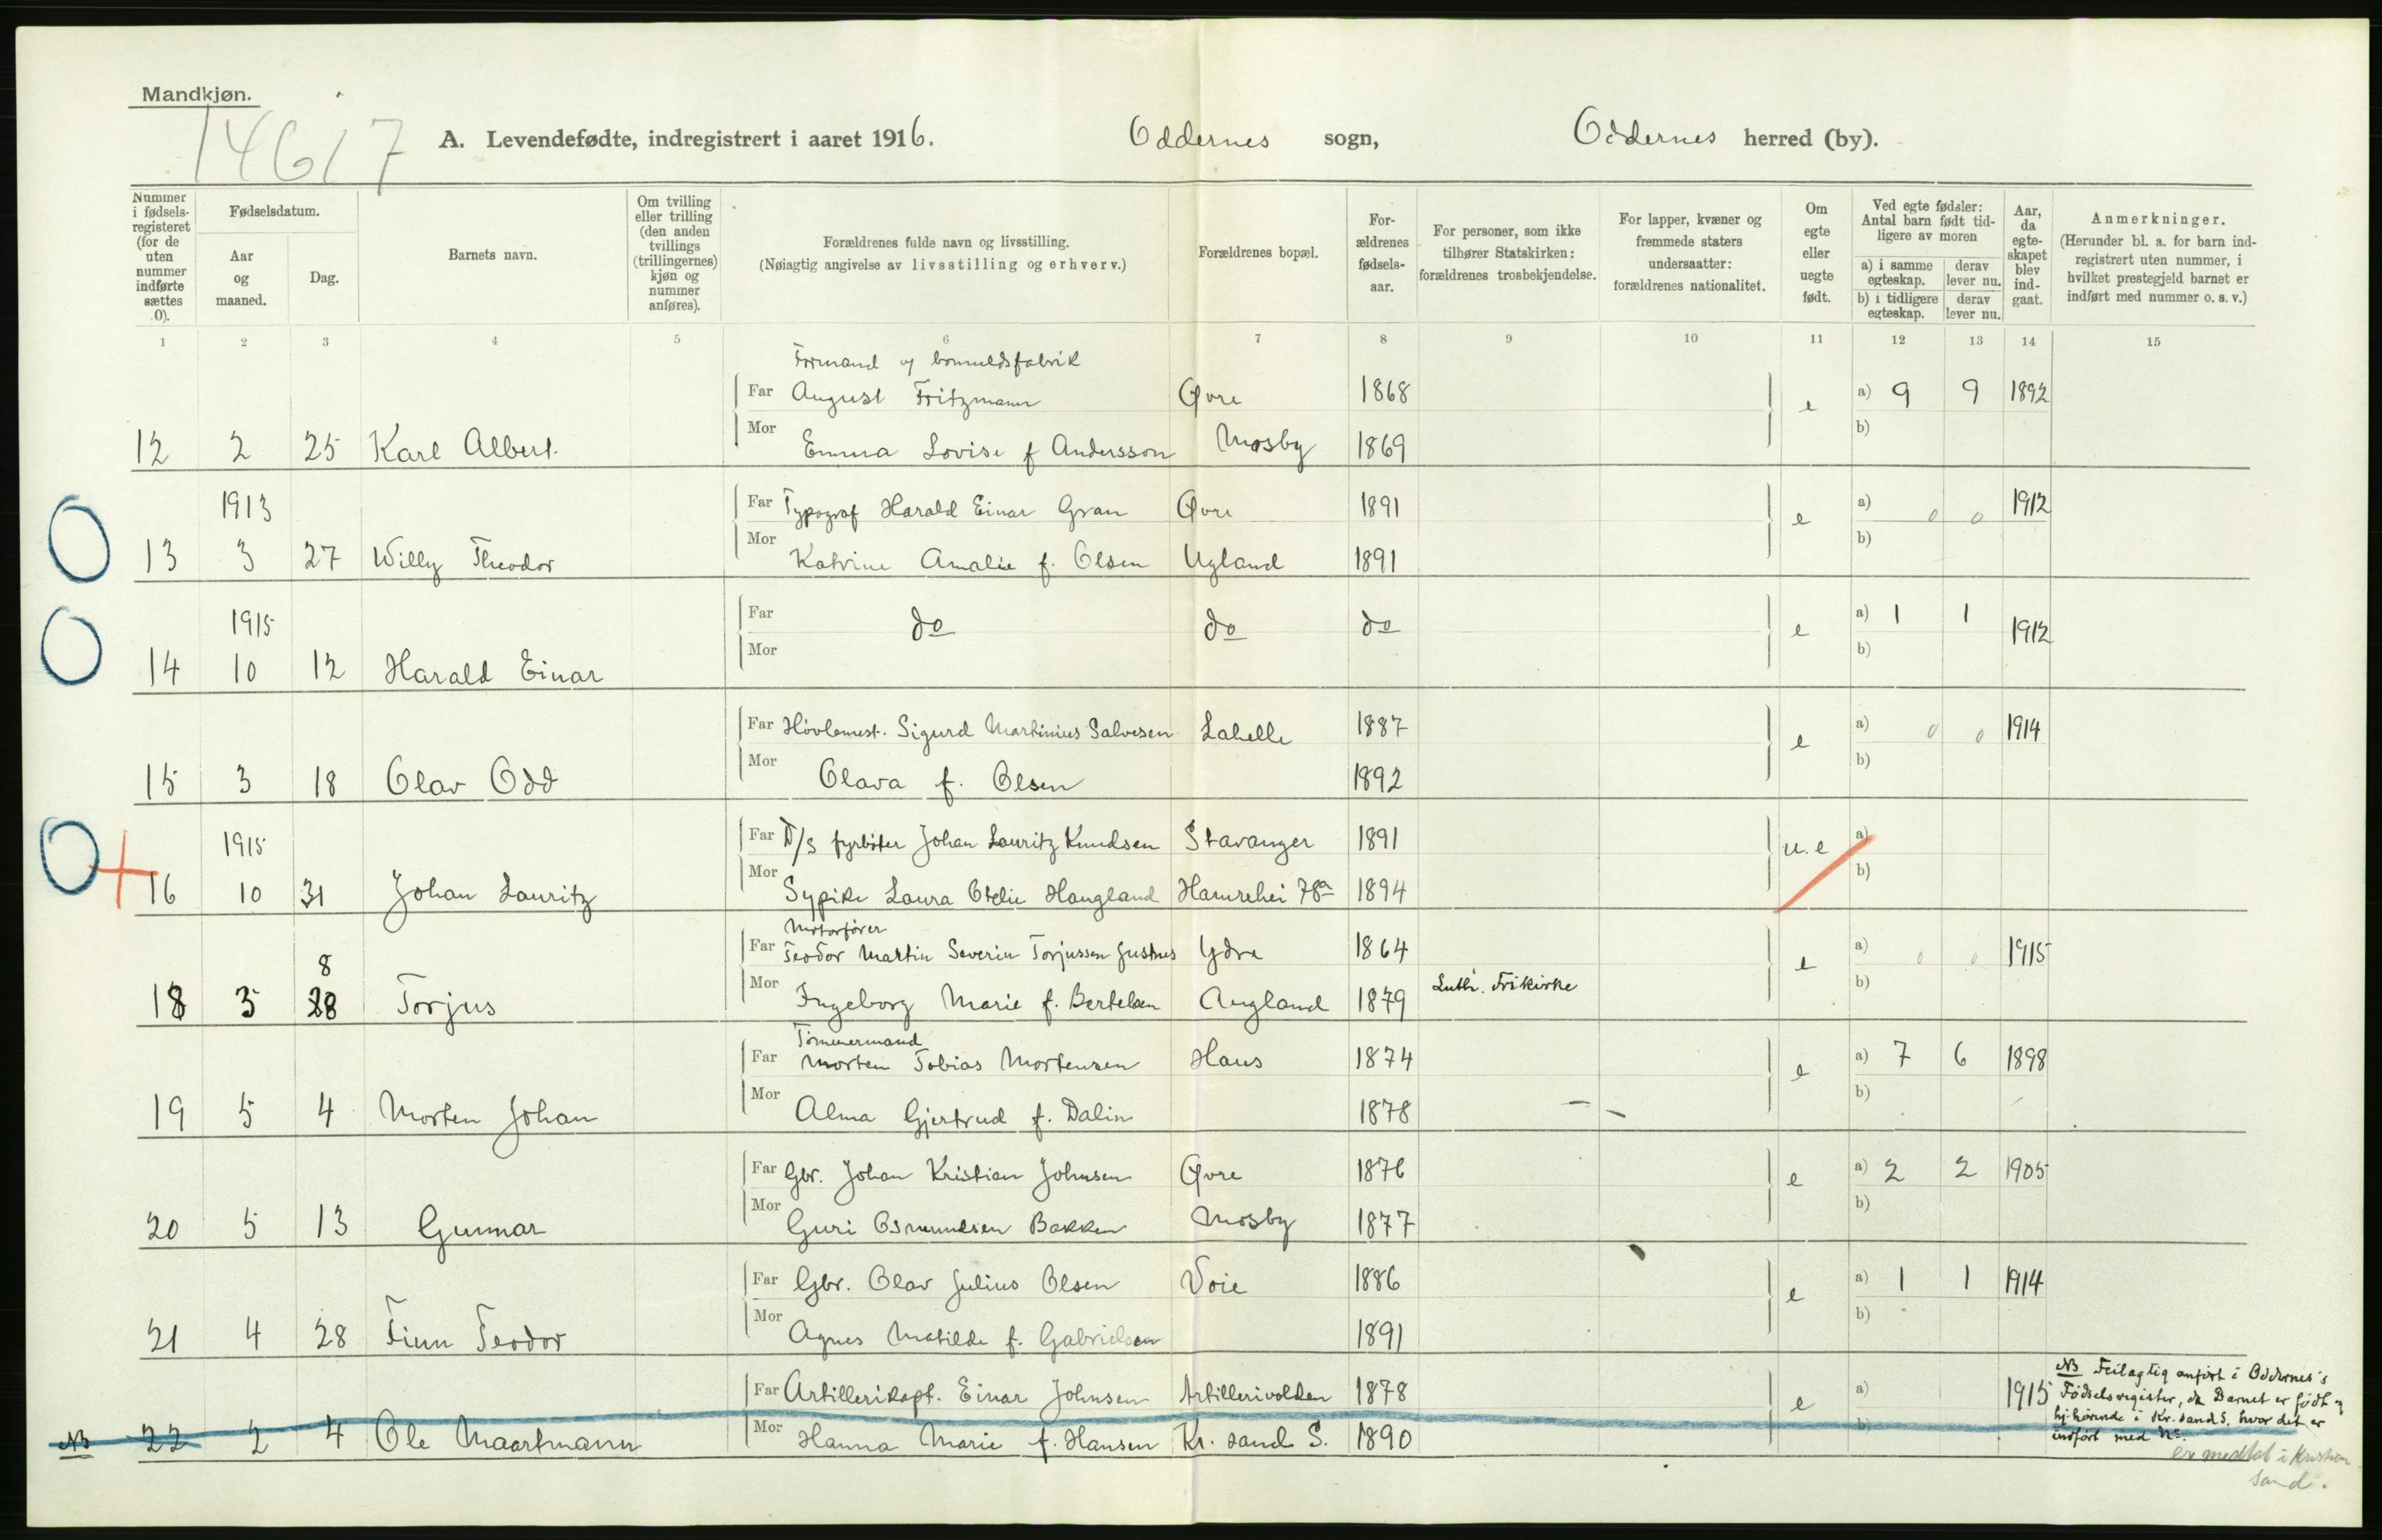 Mandkjøn.
14617
A. Levendefødte, indregistrert i aaret 1916. Oddernes sogn, Oddernes herred (by).
Nummer i fødsels-registeret (for de uten nummer indførte sættes 0).
Fødselsdatum.
Aar og maaned.
Dag.
Barnets navn.
Om tvilling eller trilling (den anden tvillings (trillingernes) kjøn og nummer anføres).
Forældrenes fulde navn og livsstilling.
(Nøiagtig angivelse av livsstilling og erhverv.)
Forældrenes bopæl.
For-ældrenes fødsels-aar.
For personer, som ikke tilhører Statskirken: forældrenes trosbekjendelse.
For lapper, kvæner og fremmede staters undersaatter: forældrenes nationalitet.
Om egte eller uegte født.
Ved egte fødsler: Antal barn født tid-ligere av moren
a) i samme egteskap. derav lever nu.
b) i tidligere egteskap. derav lever nu.
Aar, da egte-skapet blev ind-gaat.
Anmerkninger.
(Herunder bl. a. for barn ind-registrert uten nummer, i hvilket prestegjeld barnet er indført med nummer o. s. v.)
1 2 3 4 5 6 7 8 9 10 11 12 13 14 15
Formand v/ bomuldsfabrik
Far August Fritzmann Øvre 1868 e a) 9 9 1892
12 2 25 Karl Albert. Mor Emma Lovise f Andersson Mosby 1869 b)
1913 Far Typograf Harald Einar Gran Øvre 1891 e a) 0 0 1912
13 3 27 Willy Theodor Mor Katrine Amalie f. Olsen Ugland 1891 b)
1915 Far do do do e a) 1 1 1912
14 10 12 Harald Einar Mor b)
Far Høvlemest. Sigurd Martinius Salvesen Lahelle 1887 e a) 0 0 1914
15 3 18 Olav Odd Mor Olava f. Olsen 1892 b)
1915 Far D/S fyrbøter Johan Lauritz Knudsen Stavanger 1891 u.e a)
16 10 31 Johan Lauritz Mor Sypike Laura Otelie Haugland Hamrehei 78a 1894 b)
Motorfører
8 Far Teodor Martin Severin Torjussen Justnes Ydre 1864 e a) 0 0 1915
18 3 28 Torjus Mor Ingeborg Marie f. Bertelsen Augland 1879 Luth. Frikirke b)
Tømmermand
Far Morten Tobias Mortensen Haus 1874 e a) 7 6 1898
19 5 4 Morten Johan Mor Alma Gjertrud f. Dalin 1878 b)
Far Gbr. Johan Kristian Johnsen Øvre 1876 e a) 2 2 1905
20 5 13 Gunnar Mor Guri Osmundsen Bakken Mosby 1877 b)
Far Gbr. Olav Julius Olsen Voie 1886 e a) 1 1 1914
21 4 28 Finn Teodor Mor Agnes Matilde f. Gabrielsen 1891 b)
Far Artillerikapt. Einar Johnsen Artillerivolden 1878 e a) 1915
NB 22 2 4 Ole Maartmann Mor Hanna Marie f. Hansen Kr. sand S. 1890 b)
NB Feilagtig anført i Oddernes's
Fødselsregister, da Barnet er født og
hjhørende i Kr. sand S. hvor det er
indført med No.
er medtat i Kristian
sand.